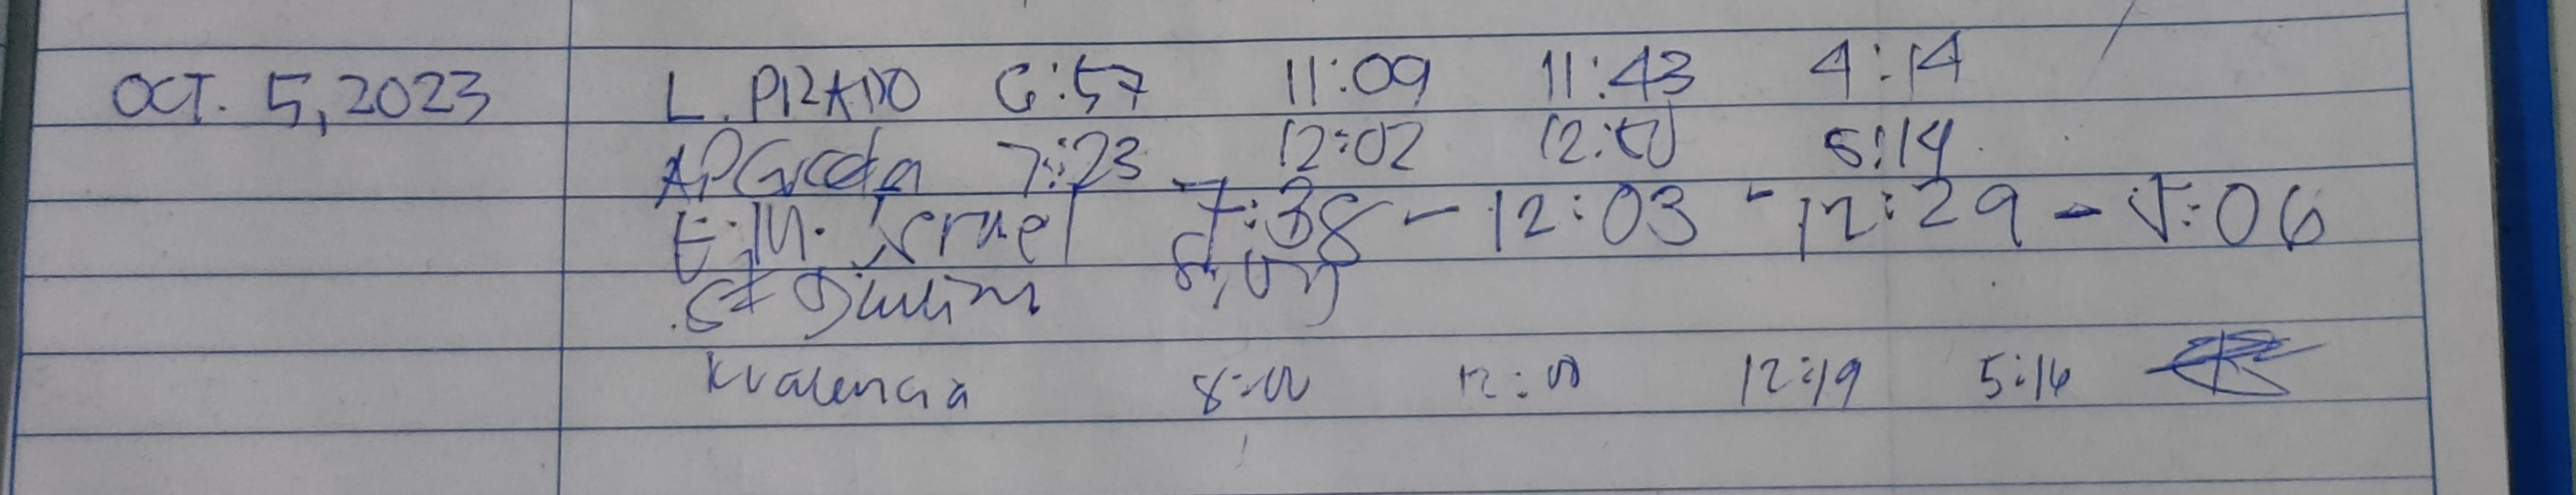 OCT. 5, 2023 L. PRADO 6:57 11:09 11:43 4:14
7:23 12:02 5:14
E.M. Israel 7:38 - 12:03 - 12:29 - 5:06
KValencia 8:00 12:00 12:19 5:16